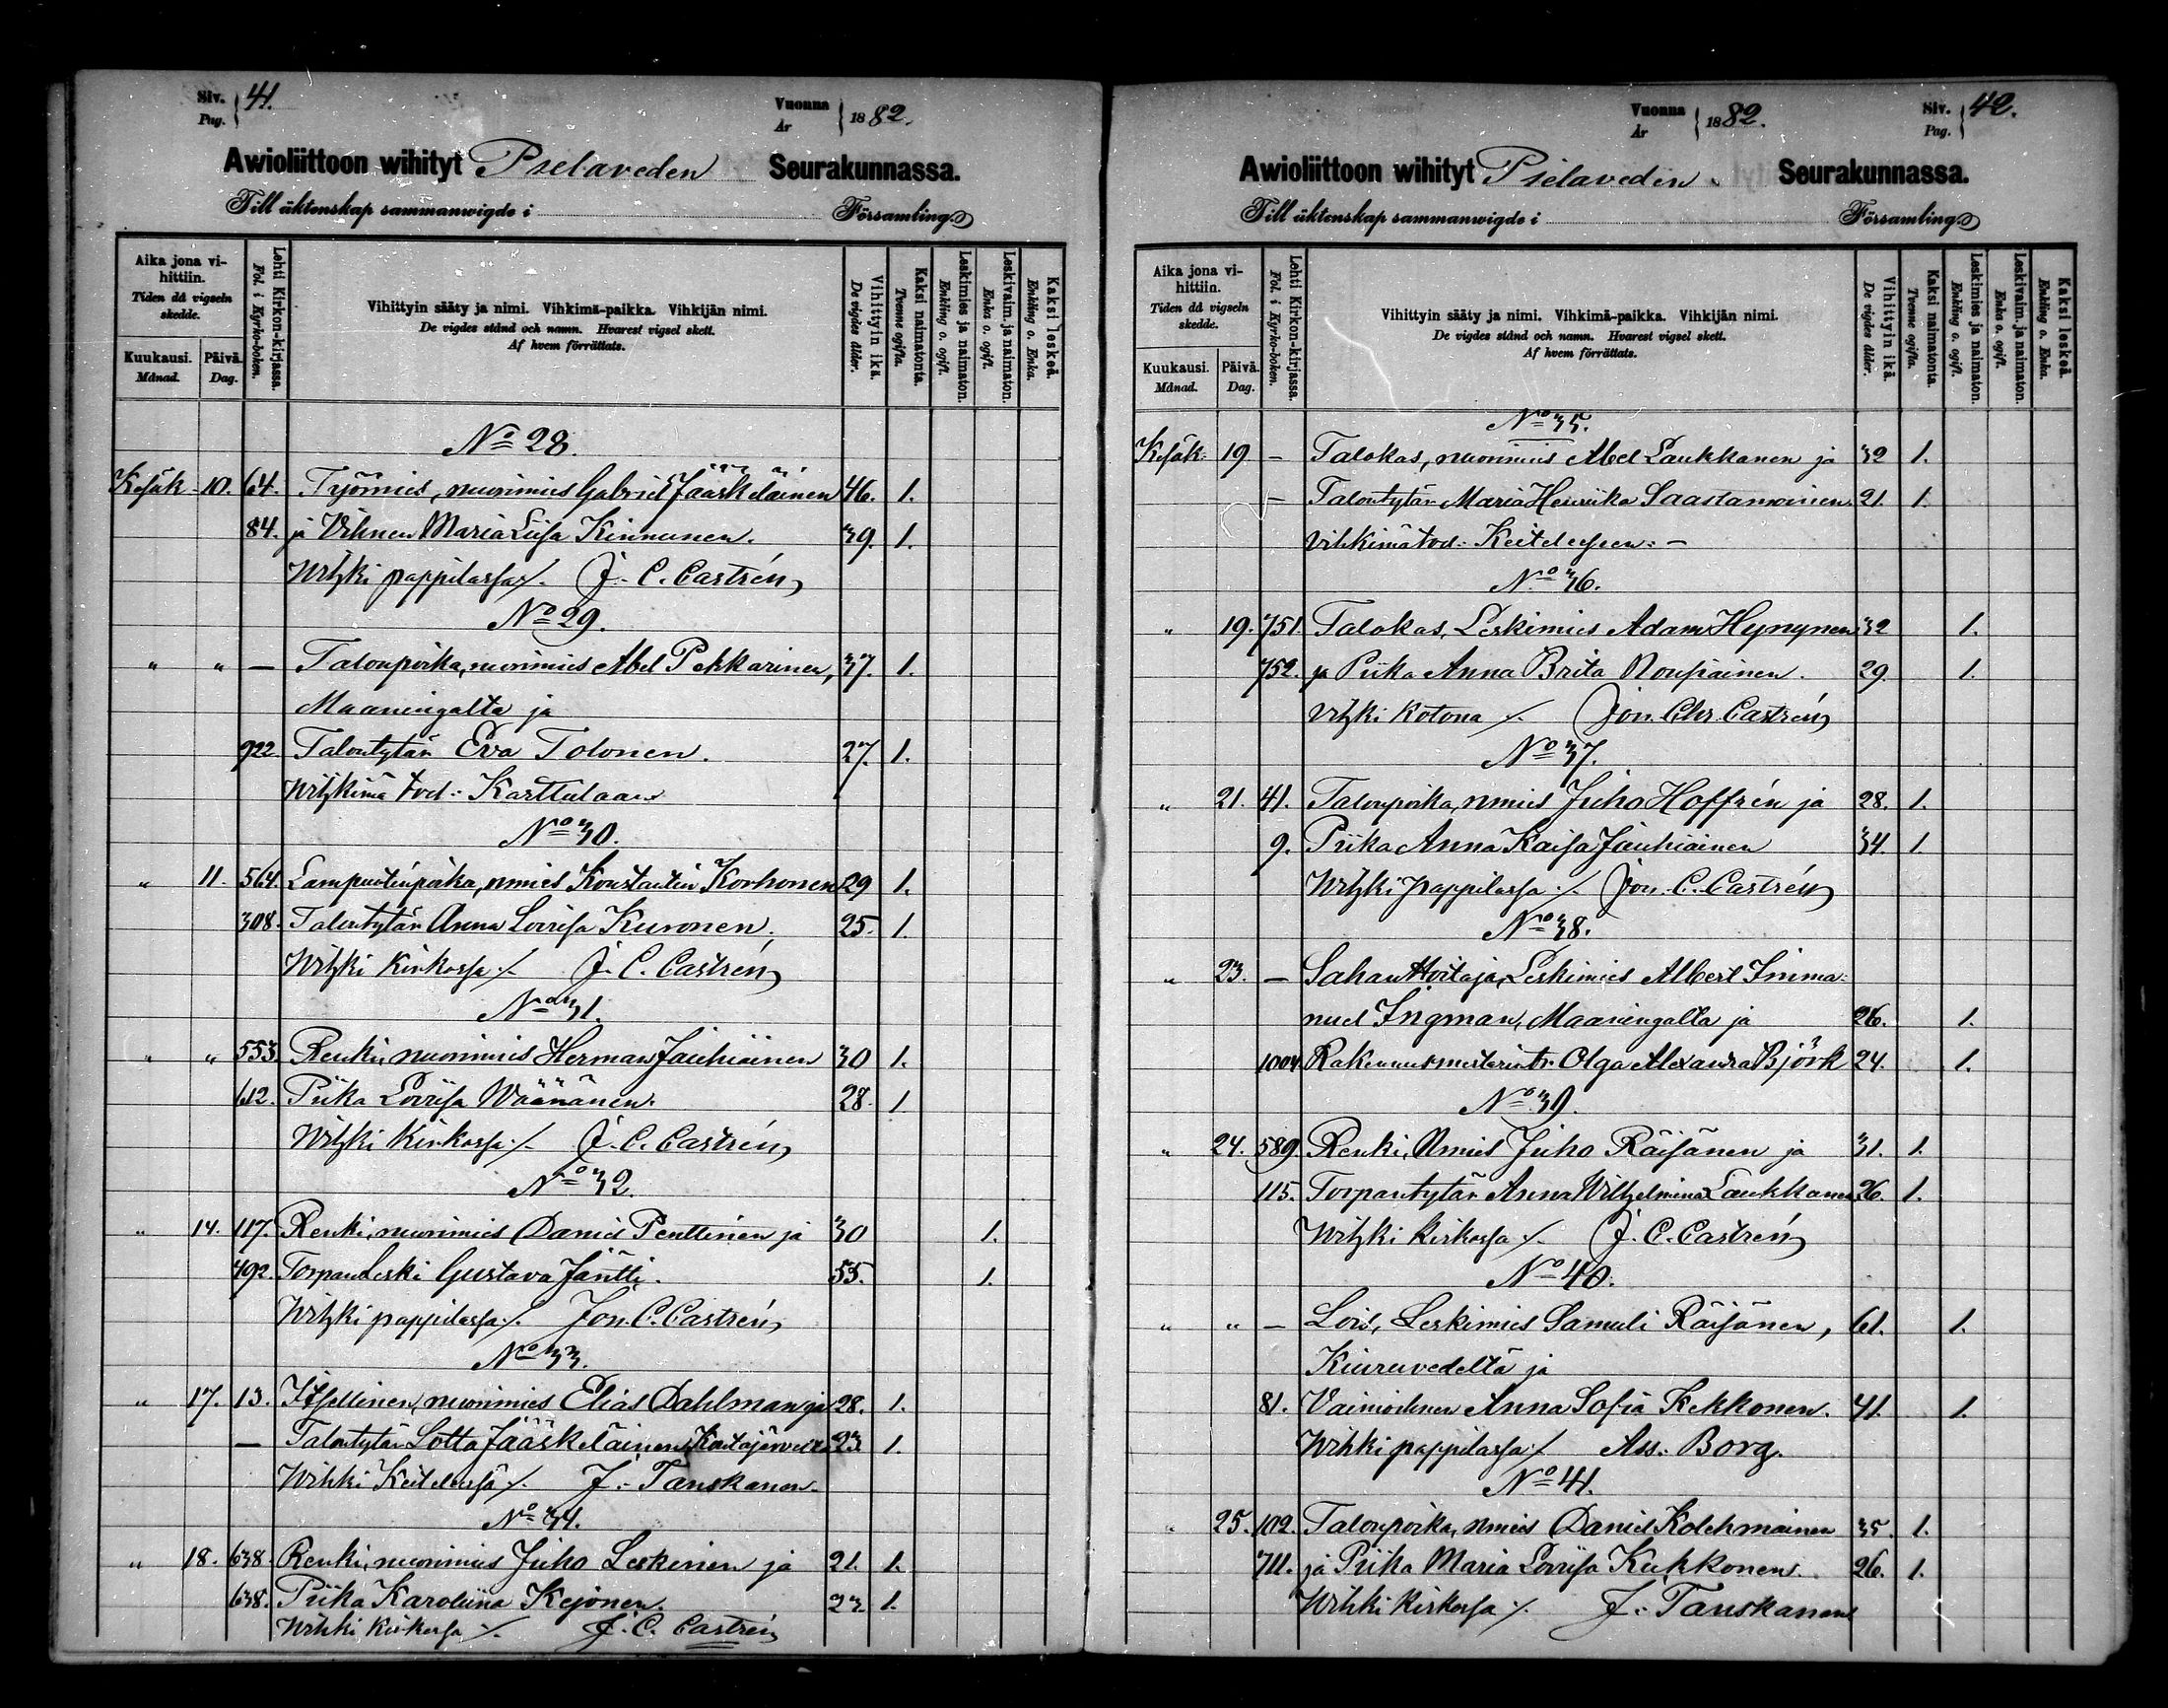 Siv. Pag. 41.
Vuonna År 1882.
Awioliittoon wihityt Pielaveden Seurakunnassa.
Till äktenskap sammanwigde i Församling
Aika jona vihittiin. Tiden då vigseln skedde.
Kuukausi. Månad.
Päivä. Dag.
Lehti Kirkon-kirjassa. Fol. i Kyrko-boken.
Vihittyin sääty ja nimi. Vihkimä-paikka. Vihkijän nimi.
De vigdes stånd och namn. Hvarest vigsel skett.
Af hvem förrättats.
Vihittyin ikä. De vigdes ålder.
Kaksi naimatonta. Tvenne ogifta.
Leskimies ja naimaton. Enkling o. ogift.
Leskivaim. ja naimaton. Enka o. ogift.
Kaksi leskeä. Enkling o. Enka.
No 28.
Kesäk. 10. 64. Työmies, nuorimies Gabriel Jääskeläinen 46. 1.
84. ja Vihnen Maria Liisa Kinnunen. 39. 1.
Wihki pappilassa ./. J. C. Castrén
No 29.
" " — Talonpoika, nuorimies Abel Pekkarinen, 37. 1.
Maaningalta ja
922. Talontytär Eva Tolonen. 27. 1.
Wihkimä tod: Karttulaan
No 30.
" 11. 564. Lampuotinpoika, nmies Konstantin Korhonen 29 1.
308. Talontytär Anna Lovisa Kuronen. 25. 1.
Wihki Kirkossa ./. J. C. Castrén
No 31.
" " 553. Renki, nuorimies Herman Jauhiainen 30 1.
612. Piika Loviisa Väänänen. 28. 1.
Wihki Kirkossa ./. J. C. Castrén
No 32.
" 14. 117. Renki, nuorimies Daniel Penttinen ja 30 1.
492. Torpanleski Gustava Jäntti. 55. 1.
Wihki pappilassa ./. Jon. C. Castrén
No 33.
" 17. 13. Itsellinen, nuorimies Elias Dahlman ja 28. 1.
— Talontytär Lotta Jääskeläinen 23. 1.
Wihki Keiteleessä ./. J. Tanskanen
No 34.
" 18. 638. Renki, nuorimies Juho Leskinen ja 21. 1.
638. Piika Karoliina Kejonen. 23. 1.
Wihki Kirkossa ./. J. C. Castrén
Vuonna År 1882.
Siv. Pag. 42.
Awioliittoon wihityt Pielaveden Seurakunnassa.
Till äktenskap sammanwigde i Församling
Aika jona vihittiin. Tiden då vigseln skedde.
Kuukausi. Månad.
Päivä. Dag.
Lehti Kirkon-kirjassa. Fol. i Kyrko-boken.
Vihittyin sääty ja nimi. Vihkimä-paikka. Vihkijän nimi.
De vigdes stånd och namn. Hvarest vigsel skett.
Af hvem förrättats.
Vihittyin ikä. De vigdes ålder.
Kaksi naimatonta. Tvenne ogifta.
Leskimies ja naimaton. Enkling o. ogift.
Leskivaim. ja naimaton. Enka o. ogift.
Kaksi leskeä. Enkling o. Enka.
No 35.
Kesäk: 19 — Talokas, nuorimies Abel Laukkanen ja 32 1.
— Talontytär Maria Henriika Saastamoinen 21. 1.
Vihkimätod: Keiteleeseen: —
No 36.
" 19. 751. Talokas, Leskimies Adam Hynynen 32 1.
752. ja Piika Anna Brita Noupiainen. 29. 1.
Vihki kotona ./. Jon. Chr. Castrén
No 37.
" 21. 41. Talonpoika, nmies Juho Hoffrén ja 28. 1.
9. Piika Anna Kaisa Jauhiainen 34. 1.
Wihki pappilassa ./. Jon. C. Castrén
No 38.
" 23. — Sahan Hoitaja, Leskimies Albert Imma-
nuel Ingman, Maaningalta ja 26. 1.
1004. Rakennusmesterintr. Olga Alexandra Björk 24. 1.
No 39.
" 24. 589. Renki, Nmies Juho Räisänen ja 31. 1.
115. Torpantytär Anna Wilhelmina Laukkanen 26. 1.
Wihki Kirkossa ./. J. C. Castrén
No 40.
" " — Lois, Leskimies Samuli Räisänen, 61. 1.
Kiuruvedeltä ja
81. Anna Sofia Kekkonen. 41. 1.
Wihki pappilassa ./. Ass. Borg.
No 41.
" 25. 102. Talonpoika, Nmies Daniel Kolehmainen 35. 1.
711. ja Piika Maria Loviisa Kukkonen. 26. 1.
Wihki Kirkossa ./. J. Tanskanen